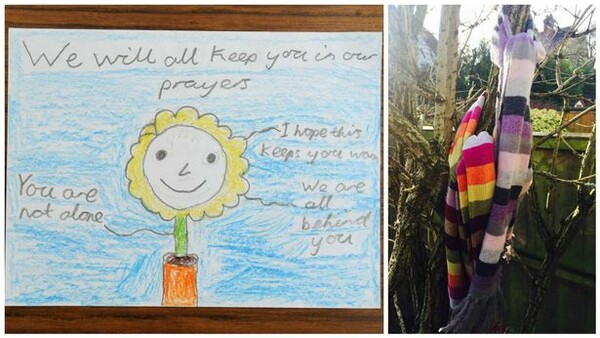 We will all keep you in our
prayers
I hope this
keeps you warm
You are
not alone
We are
all
behind
you